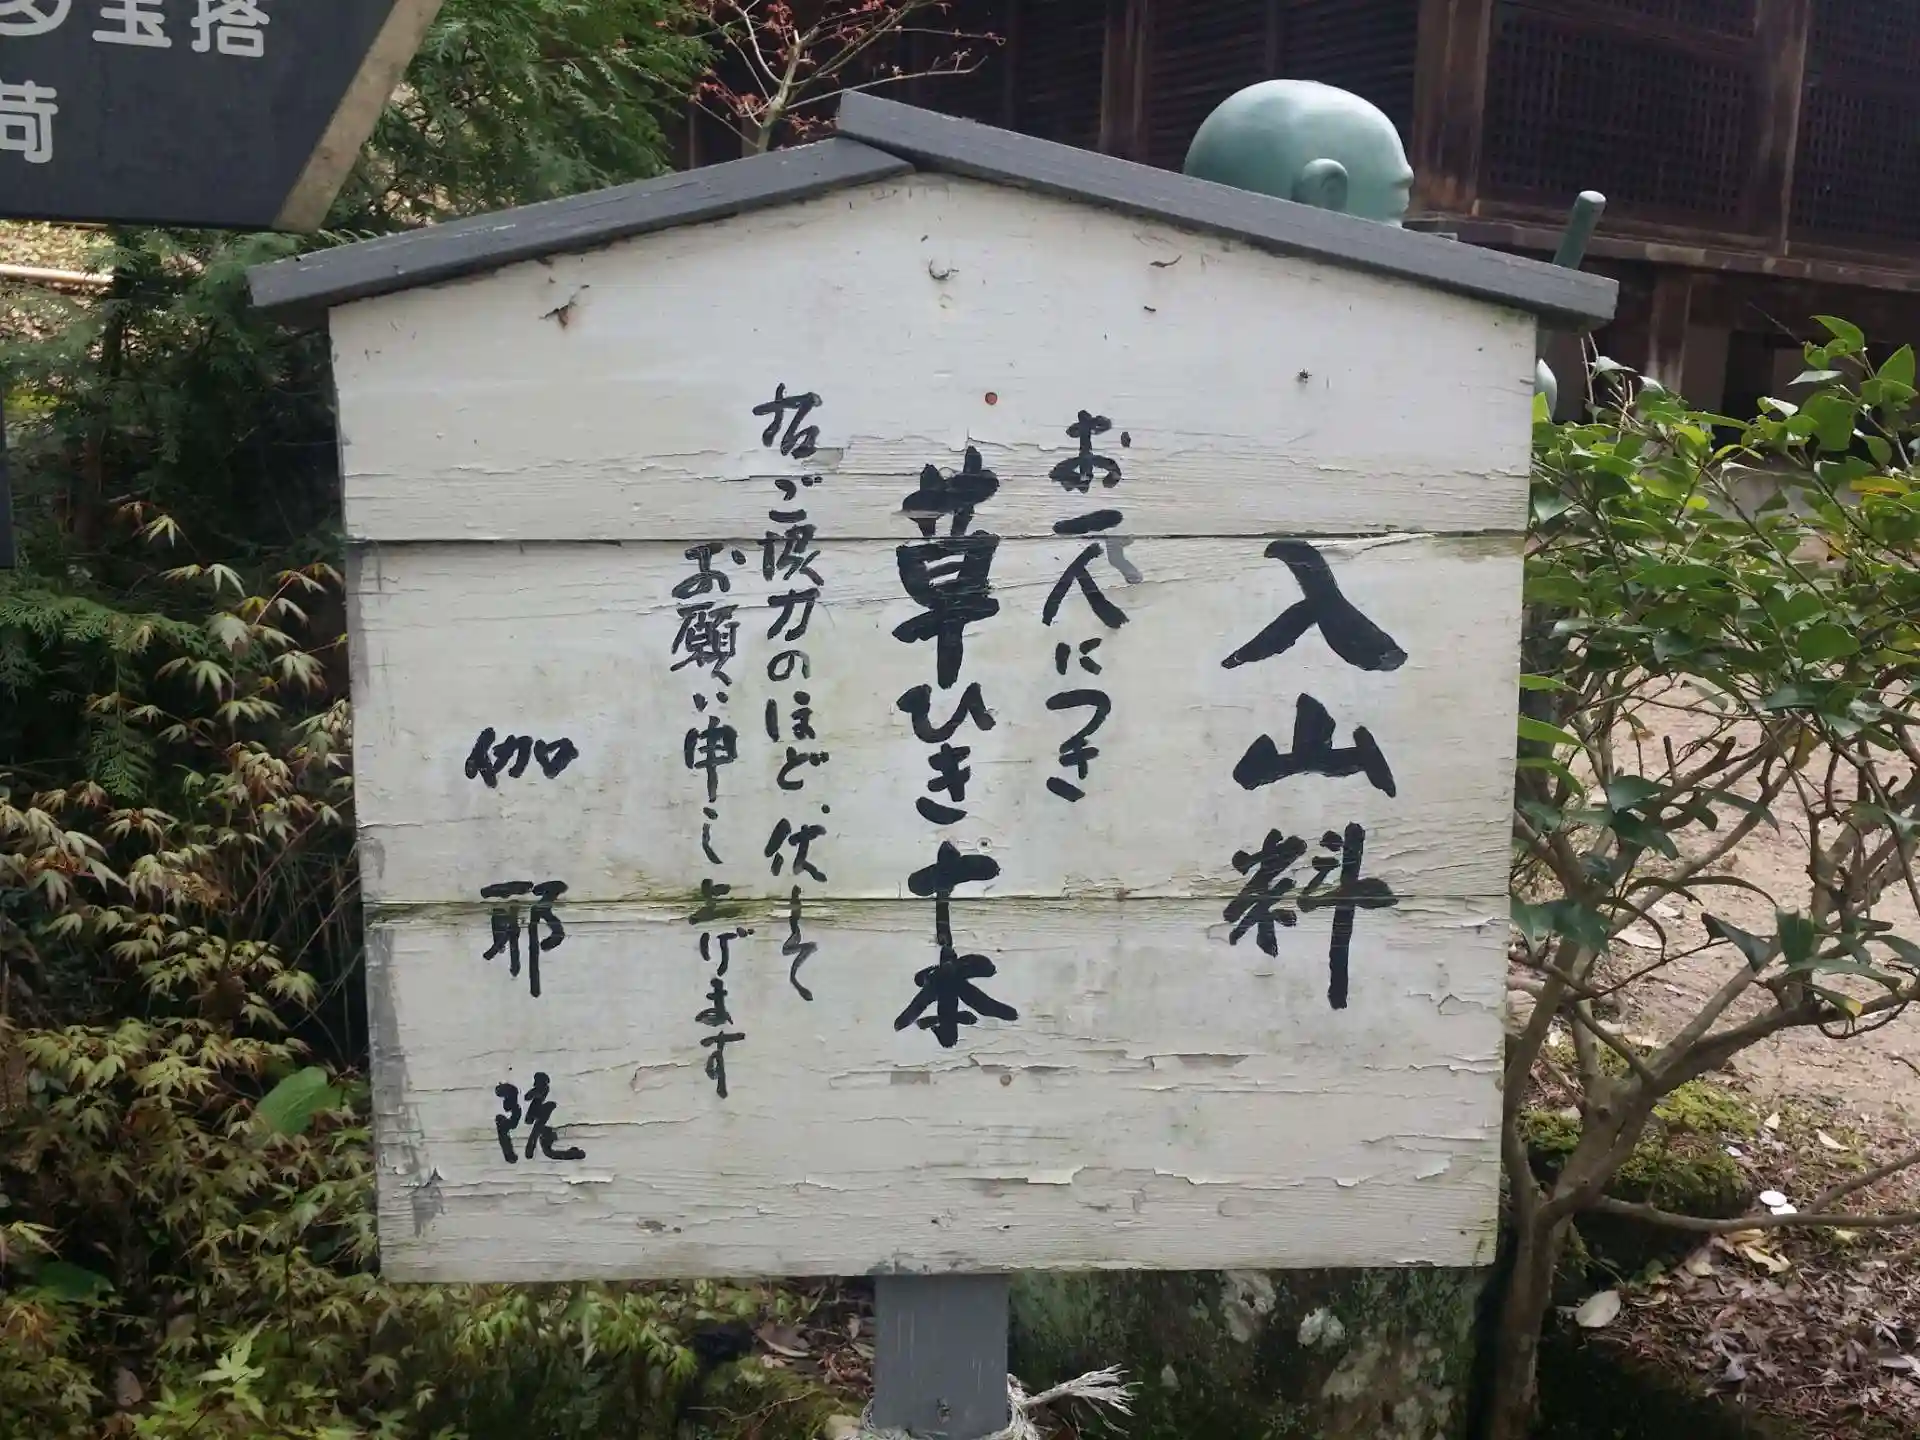 多宝塔
荷
入山料
お一人につき
草ひき十本
右ご協力のほど、伏して
お願い申し上げます
伽耶院